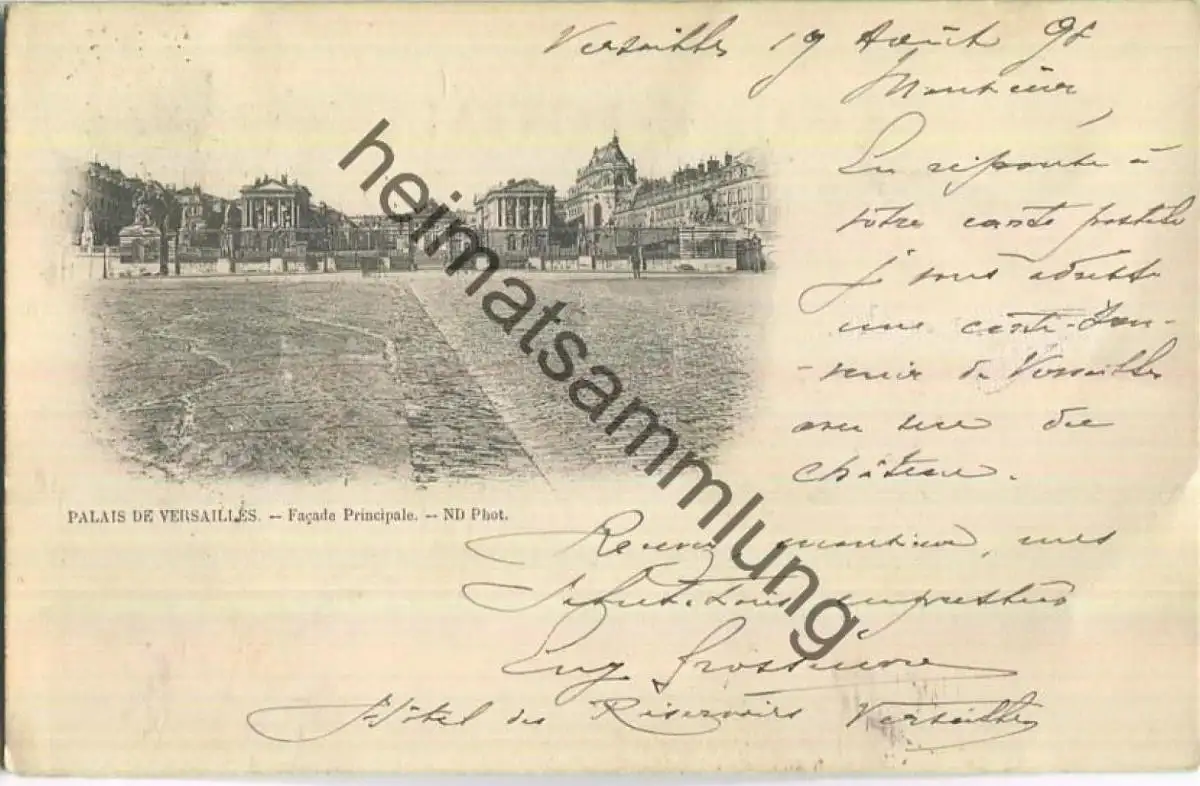 Versailles 19 Août 98
Monsieur,
En réponse à
votre carte postale
je vous adresse
une carte-Sou-
-venir de Versailles
avec vue du
château.
Recevez, monsieur, mes
Salutations empressées
Eug
Hôtel des Réservoirs Versailles
PALAIS DE VERSAILLES. — Façade Principale. — ND Phot.
heimatsammlung.de